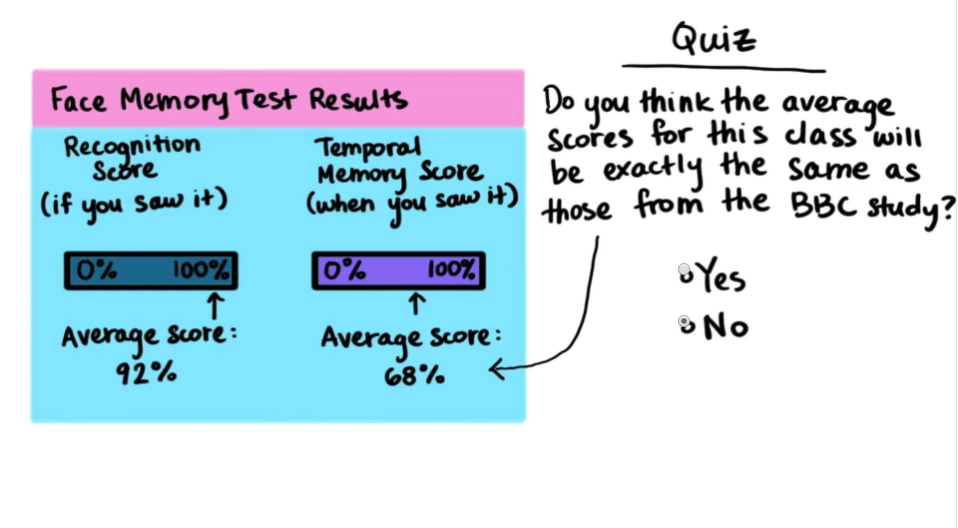 Quiz
Face Memory Test Results
Recognition
Score
(if you saw it)
0% 100%
Average Score:
92%
Temporal
Memory Score
(when you saw it)
0% 100%
Average Score:
68%
Do you think the average
scores for this class will
be exactly the same as
those from the BBC study?
Yes
No